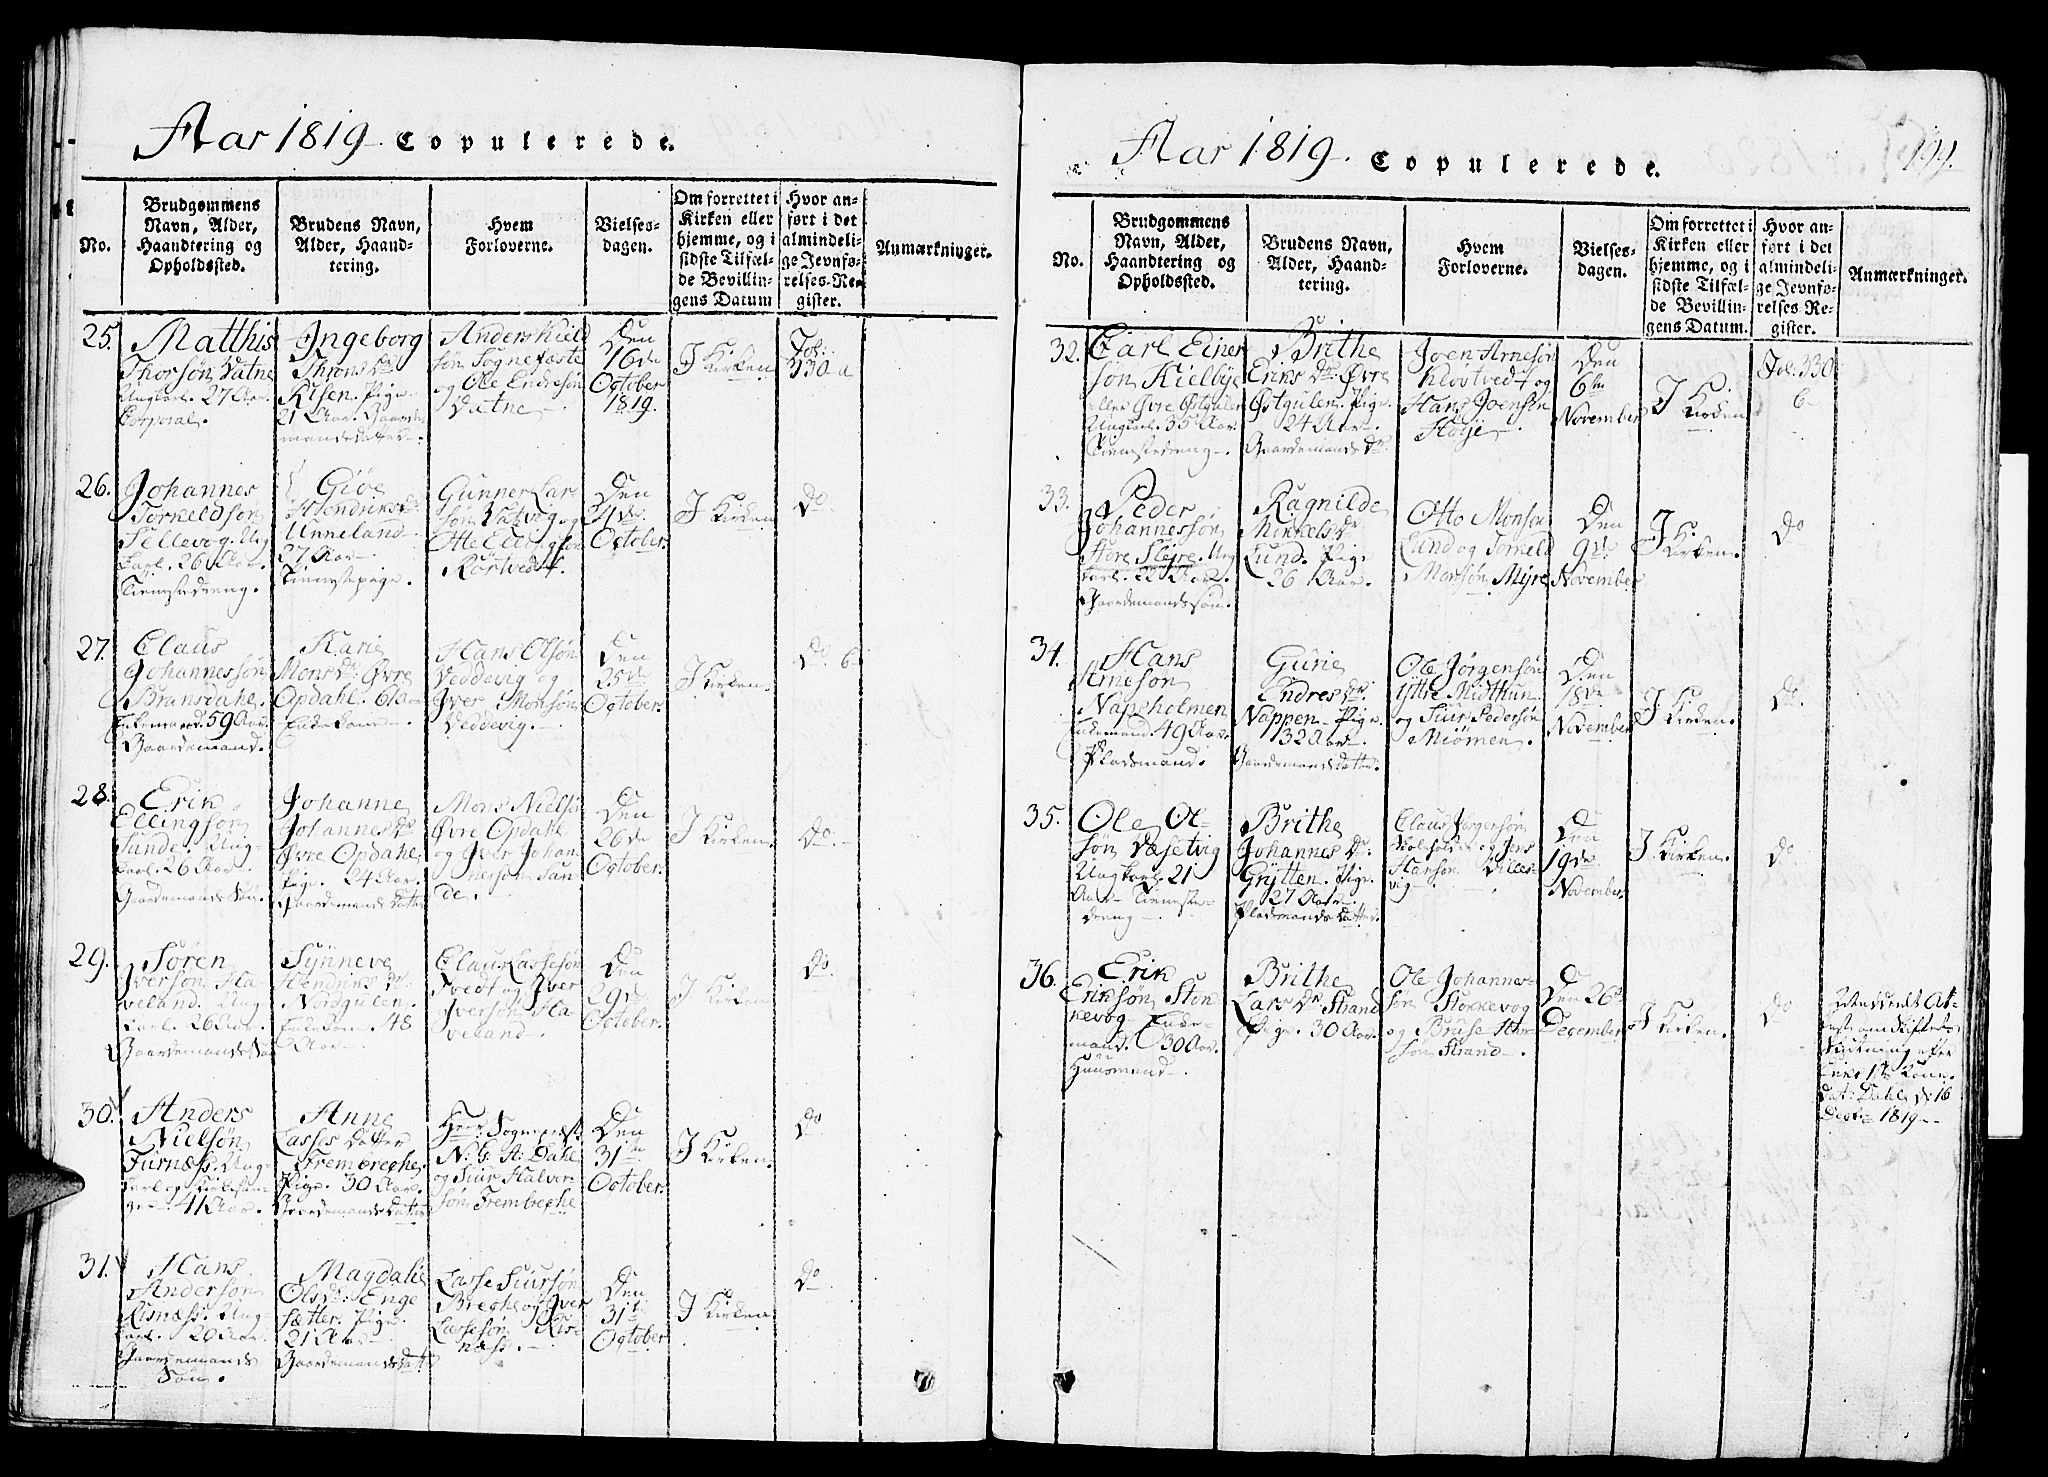 Aar 1819 Copulerede.
No.
Brudgommens
Navn, Alder,
Haandtering og
Opholdssted.
Brudens Navn,
Alder, Haand-
tering.
Hvem
Forloverne.
Vielses-
dagen.
Om forrettet i
Kirken eller
hjemme, og i
sidste Tilfæl-
de Bevillin-
gens Datum
Hvor an-
ført i det
almindeli-
ge Jevnfø-
relses-Re-
gister.
Anmærkninger.
25.
Matthis
Thorsøn Vatne
Ungkarl. 27 Aar.
Corporal.
Ingeborg
Throns Dr
Risen. Pige.
21 Aar. Gaarde
mandsdatter.
Anders Kield
søn Sognefæste
og Ole Endresøn
Vatne
Den
16de
October
1819.
I Kirken
Fol:
330 a
26.
Johannes
Torkeldsøn
Sellevog. Ung
karl. 26 Aar.
Tienestedreng.
Giøe
Hendriks Dr
Unneland
27 Aar
Tienestepige.
Gunner Lar
søn Vatvig og
Otte
Den
October.
I Kirken
Do.
27.
Claus
Johannessøn
Bransdahl.
Enkemand. 59 Aar.
Gaardemand.
Kari
Mons Dr. Øvre
Opdahl. 61 Aar
Enkekone
Hans Olsøn
Veddevig og
Iver Monsøn
Veddevig.
Den
25de
October.
I Kirken.
Do. 6
28.
Erik
Ellingsøn
Sunde. Ung-
karl. 26 Aar
Gaardemands Søn.
Johanne
Johannes Dr
Øvre Opdahl
Pige. 24 Aar.
Gaardemands datter
Mons Nielsøn
Øvre Opdahl
og Iver Johan-
nessøn Sun
de.
Den
26de
October.
I Kirken.
Do.
29.
Søren
Iversøn Ha-
veland. Ung
karl. 26 Aar.
Gaardemands Søn
Synneve
Hendriks Dr
Nordgulen.
Enkekone. 48
Aar
Claus Lassesøn
Tvedt og Iver
Iversøn Ha-
veland.
Den
29de
October.
I Kirken
Do.
30.
Anders
Nielsøn
Furnæss. Ung-
karl og Kirkesan-
ger. 41 Aar.
Anne
Lasses Datter
Frembrephe.
Pige. 30 Aar.
Gaardemands datter
Herr Sognepræst
N. G. A: Dahl
og Siur Halver-
søn Frembrephe
Den
31te
October.
I Kirken.
Do
31.
Hans
Andersøn
Risnæss. Ung
karl. 20 Aar.
Gaardemands
Søn.
Magdalie
Ols Dr: Enge
sætter. Pige
21 Aar
Gaardemandsdatt
Lasse Siursøn
Brephe og Iver
Lassesøn Ris-
næss.
Den
31te
October
I Kirken.
Do
Aar 1819. Copulerede.
191.
No.
Brudgommens
Navn, Alder,
Haandtering og
Opholdssted.
Brudens Navn,
Alder, Haand-
tering.
Hvem
Forloverne.
Vielses-
dagen.
Om forrettet i
Kirken eller
hjemme, og i
sidste Tilfæl-
de Bevillin-
gens Datum.
Hvor an-
ført i det
almindeli-
ge Jevnfø-
relses Re-
gister.
Anmærkninger.
32.
Carl Einer
søn Kielbye
eller Øvre Østgulen
Ungkarl. 35 Aar.
Tienestedreng.
Brithe
Eriks Dr. Øvre
Østgulen. Pige.
24 Aar.
Gaardemands Dr.
Joen Arnesøn
Kløvtvedt og
Hans Joensøn
Høije
Den
6te
November
I Kirken
Fol. 330
6
33.
Peder
Johannessøn
Store Fløjre. Ung
karl. 22 Aar.
Gaardemandssøn.
Ragnilde
Mikkels Dr
Lund. Pige
26 Aar.
Otto Monsøn
Lund og Torkeld
Monsøn Myre
Den
9de
November
I Kirken.
Do
34.
Hans
Arnesøn
Napsholmen
Enkemand. 49 Aar.
Pladsmand.
Gurie
Endres Dr.
Nappen. Pige.
32 Aar.
Gaardemandsdatter.
Ole Jørgensøn
Ytre Midthun
og Siur Pedersøn
Miømen.
Den
18de
November
I Kirken.
Do
35.
Ole Ol-
søn Dasetvig
Ungkarl. 21
Aar. Tieneste-
dreng
Brithe
Johannes Dr.
Grytten. Pige.
27 Aar.
Pladsmands datter.
Claus Jørgensøn
og Jens
Hansøn
vig
Den
19de
November.
I Kirken.
Do
36.
Erik
Eriksøn Stok
kevog. Enke-
mand. 30 Aar.
Huusmand.
Brithe
Lars Dr Strand
Pige. 30 Aar.
Ole Johannes-
søn Stokkevog
og Bruse
søn Strand.
Den 26de
December
I Kirken.
Do
At-
test om Skiftets
Slutning efter
1te Kone.
dat: Dahle d: 16
Decbr 1819